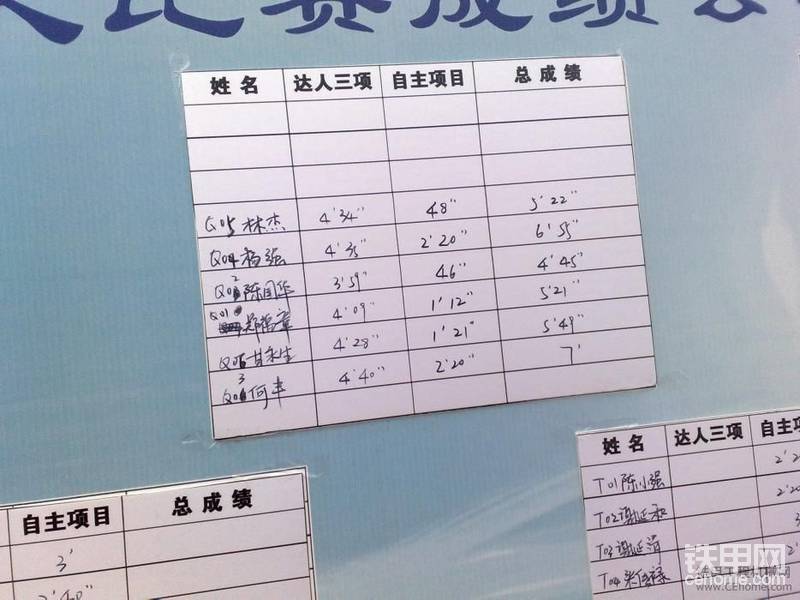 比赛成绩公
姓名 达人三项 自主项目 总成绩
Q05 林杰 4'34" 48" 5'22"
Q04 杨强 4'35" 2'20" 6'55"
Q02 陈国华 3'59" 46" 4'45"
Q01 4'09" 1'12" 5'21"
Q06 甘永生 4'28" 1'21" 5'49"
Q03 何丰 4'40" 2'20" 7'
自主项目 总成绩
3'
姓名 达人三项 自主
T01 陈小强
T02 谢延和
T03 谢延
T04
铁甲网
cehome.com
www.CEhome.com